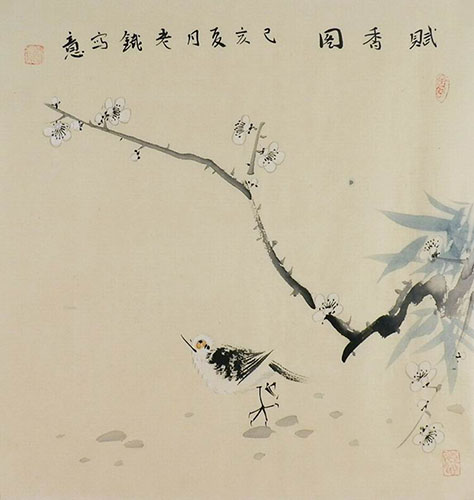 賦香图 己亥夏月老鐵写意